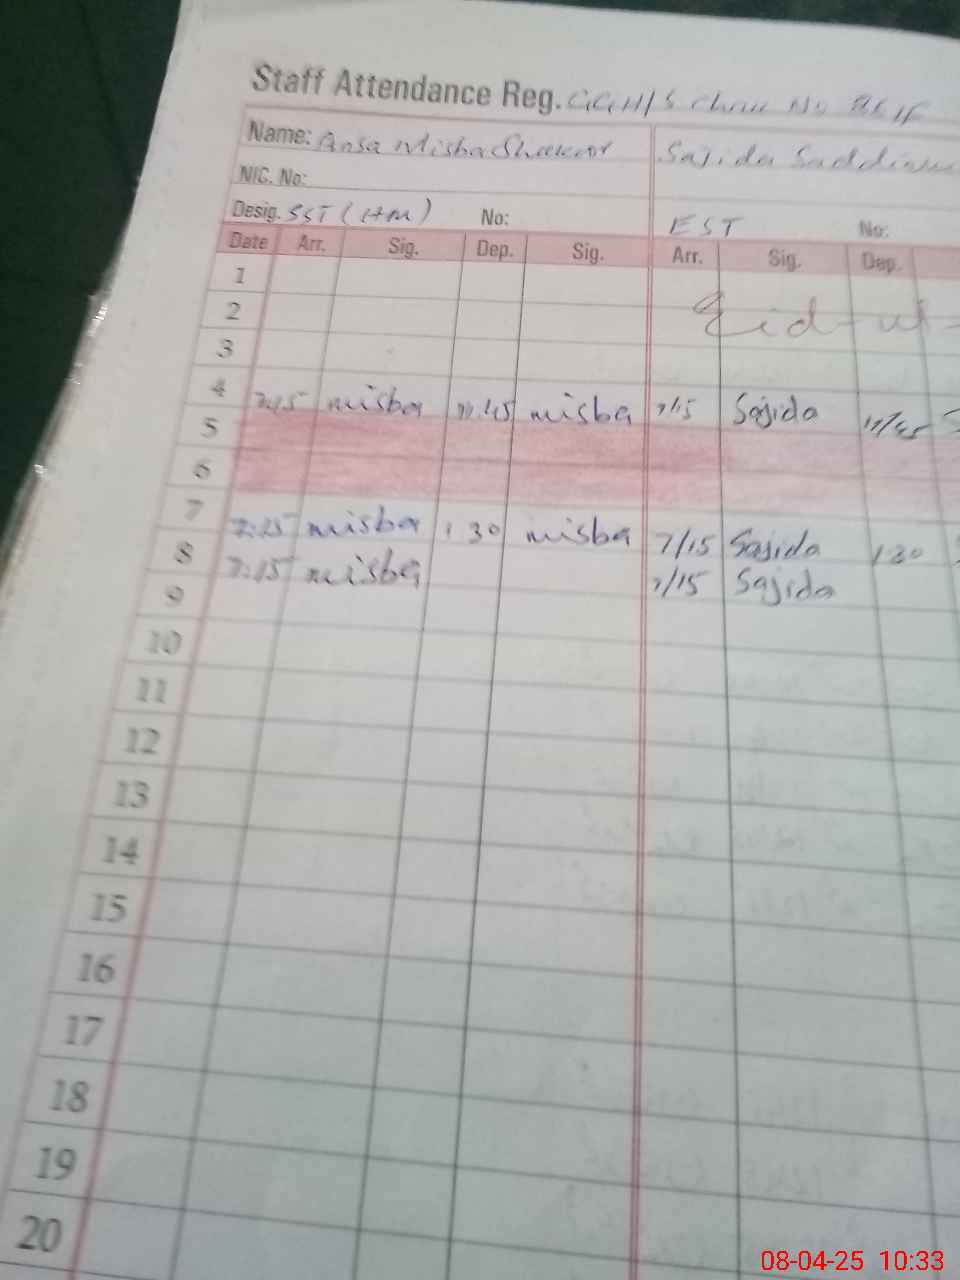 Staff Attendance Reg. GGH/S Chak No
Name: Ansa Misba Sajida
NIC. No:
Desig. SST (HM) No: EST No:
Date Arr. Sig. Dep. Sig. Arr. Sig. Dep.
1
2 Eid-ul-
3
4 7:15 misba 11:45 misba 7/15 Sajida 11/45
5
6
7 7:15 misba 1 30 misba 7/15 Sajida 1 30
8 7:15 misba 7/15 Sajida
9
10
11
12
13
14
15
16
17
18
19
20
08-04-25 10:33